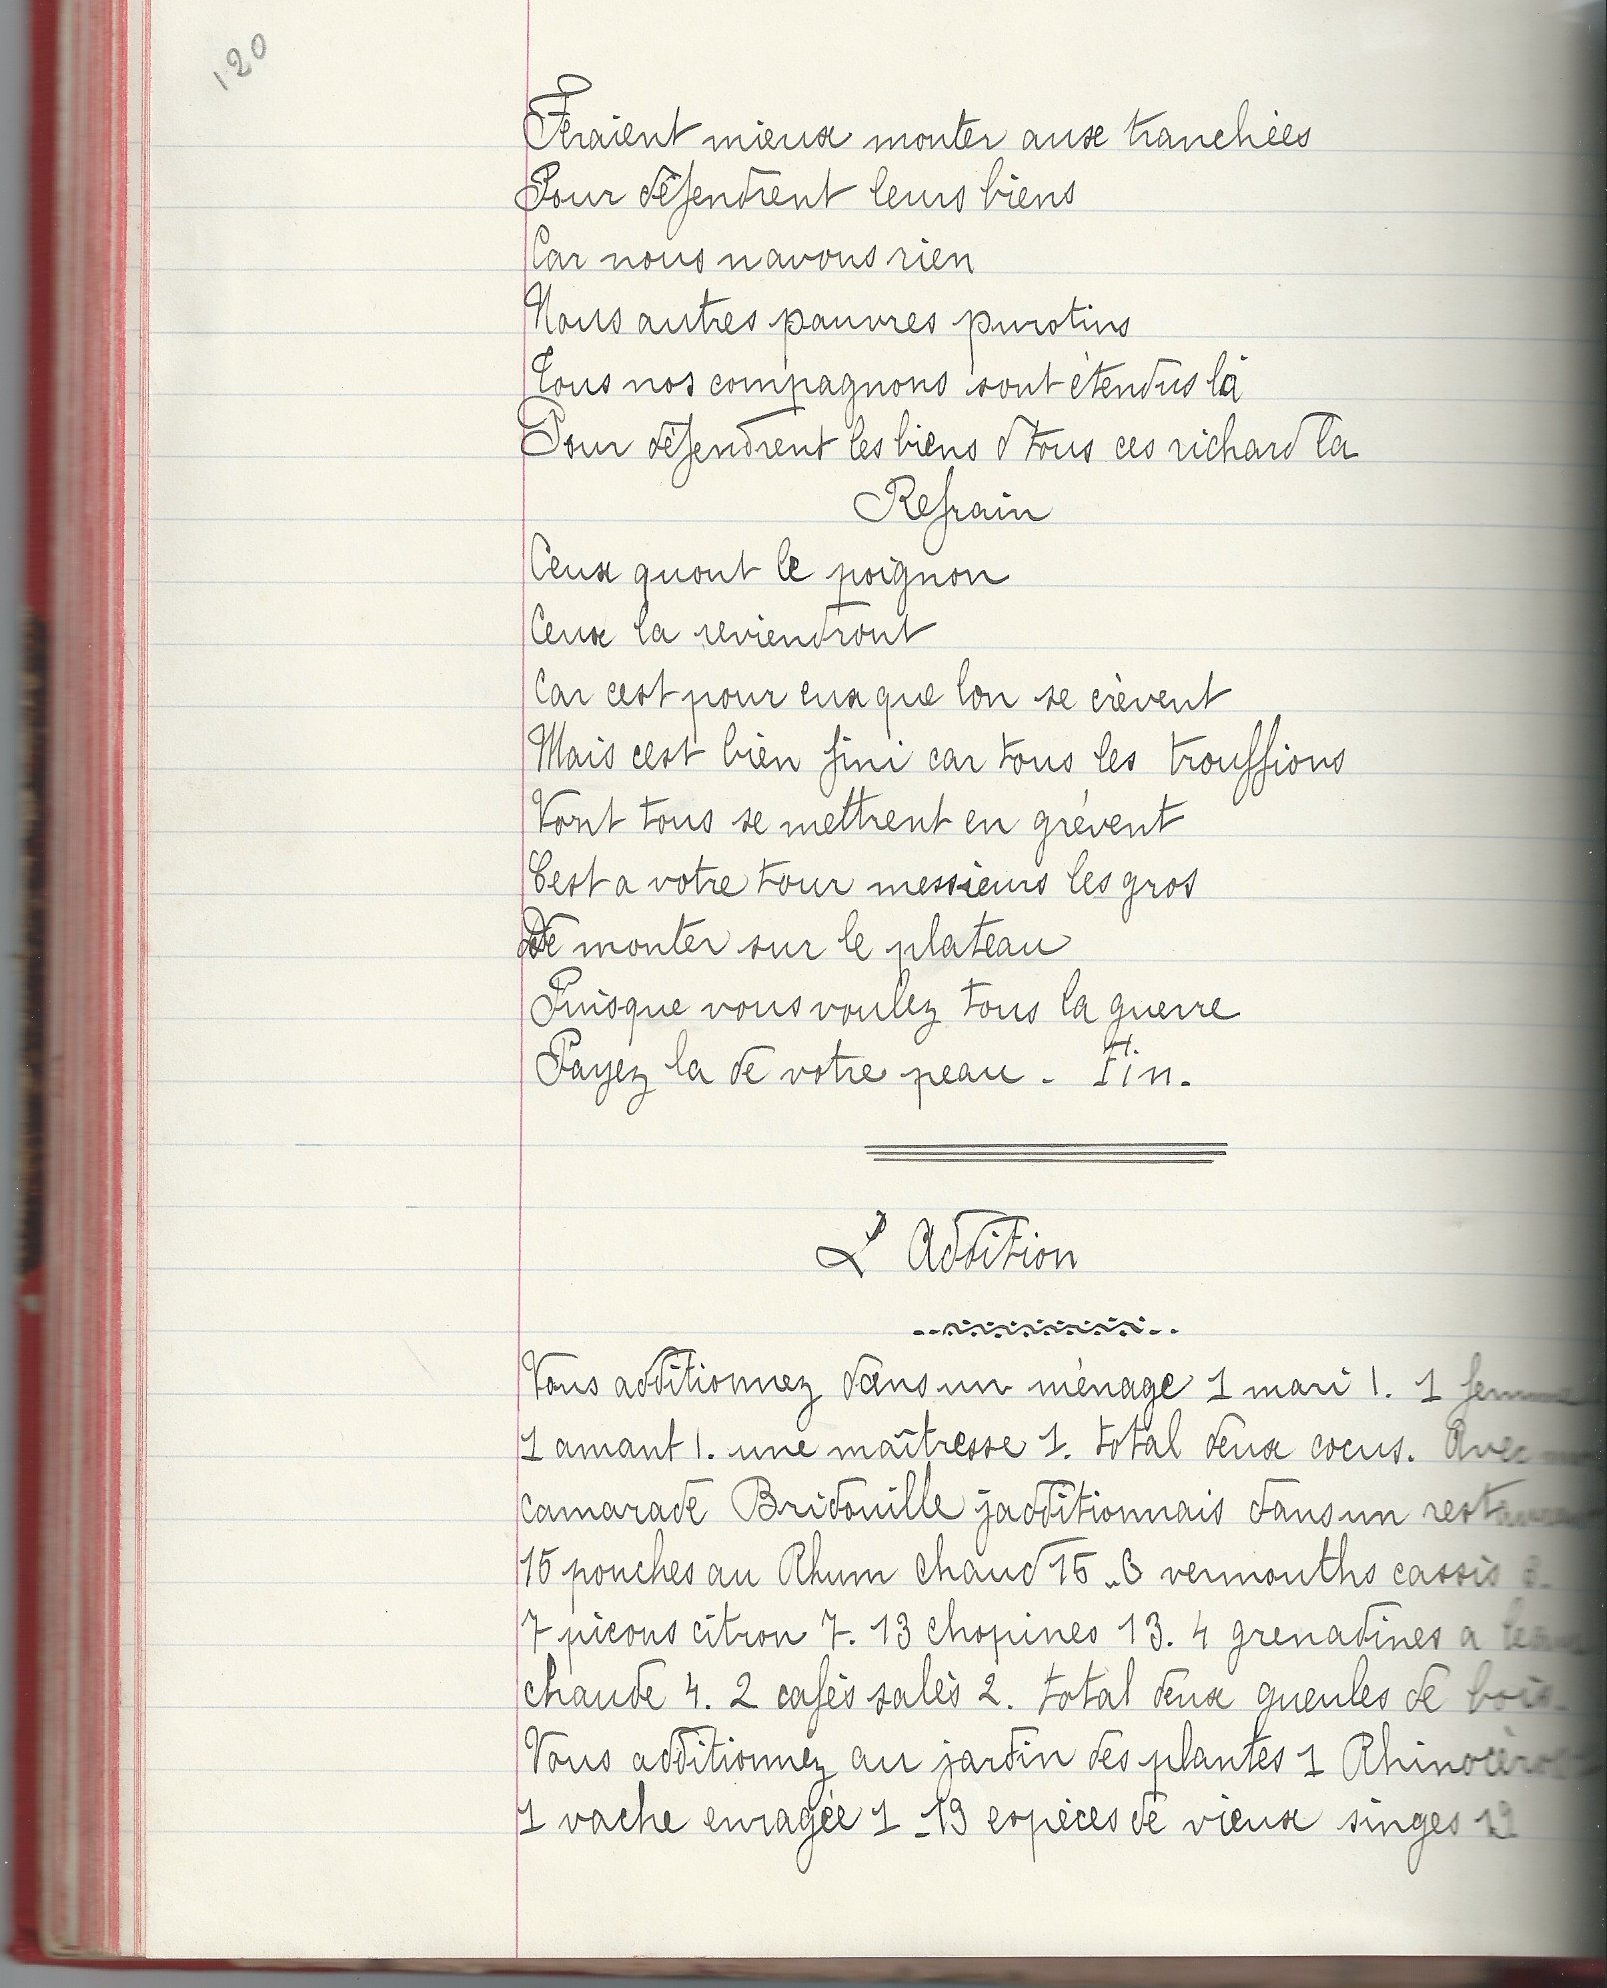 120
Feraient mieux monter aux tranchées
Pour défendrent leurs biens
Car nous navons rien
Nous autres pauvres purotins
Tous nos compagnons sont étendus là
Pour défendrent les biens d tous ces richard la
Refrain
Ceux quont le poignon
Ceux la reviendront
Car cest pour eux que lon se crèvent
Mais cest bien fini car tous les trouffions
Vont tous se mettrent en grèvent
Cest a votre tour messieurs les gros
De monter sur le plateau
Puisque vous voulez tous la guerre
Payez la de votre peau - Fin.
L' Addition
Vous additionnez dans un ménage 1 mari 1. 1 femme
1 amant 1. une maîtresse 1. total deux cocus. Avec
camarade Bridouille jadditionnais dans un restaurant
15 pouches au Rhum chaud 15 - 6 vermouths cassis
7 picons citron 7. 13 chopines 13. 4 grenadines a leau
chaude 4. 2 cafés salés 2. total deux gueules de bois.
Vous additionnez au jardin des plantes 1 Rhinocéros
1 vache enragée 1 - 19 espèces de vieux singes 19